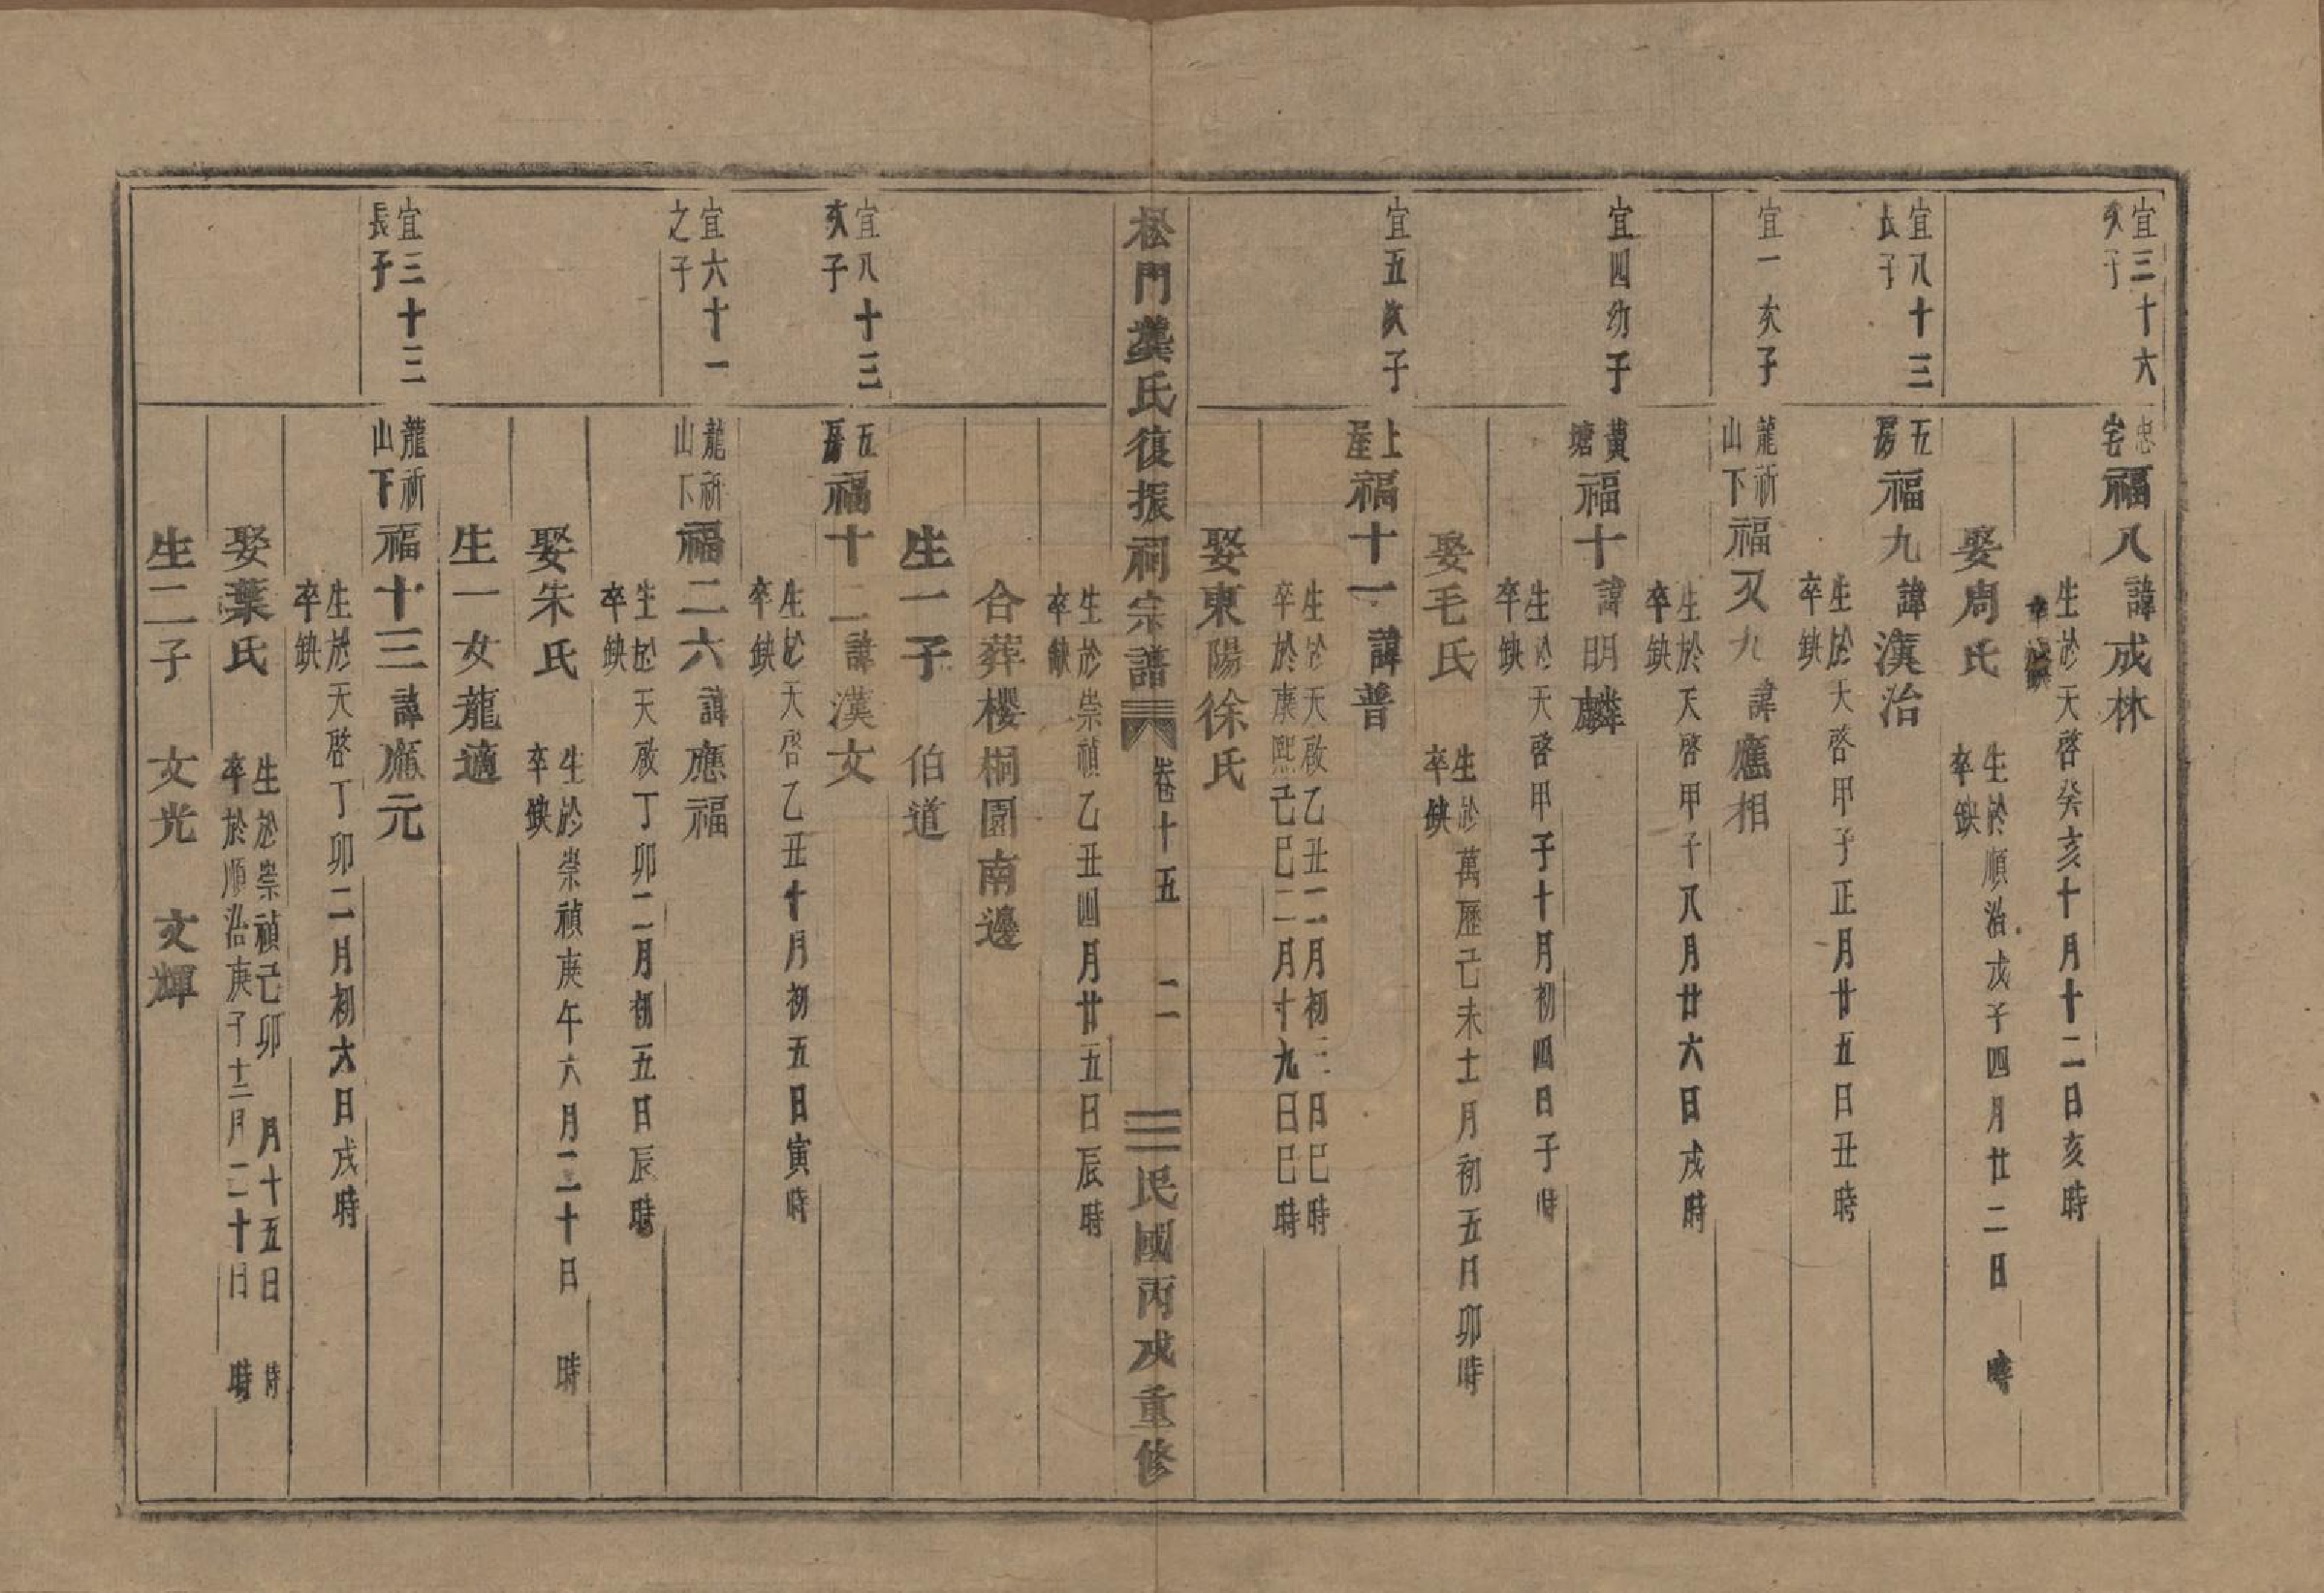 宜三十六
次子
忠
宅
福八
諱
成林
生於天啓癸亥十月十二日亥時
卒缺
娶周氏
生於順治戊子四月廿二日　時
卒缺
宜八十三
長子
五
房
福九
諱
漢治
生於天啓甲子正月廿五日丑時
卒缺
宜一次子
龍祈
山下
福又九
諱
應相
生於天啓甲子八月廿六日戌時
卒缺
宜四幼子
黃
塘
福十
諱
明麟
生於天啓甲子十月初四日子時
卒缺
娶毛氏
生於萬歷己未十一月初五日卯時
卒缺
宜五次子
上
屋
福十一
諱
普
生於天啟乙丑二月初三日巳時
卒於康熙己巳二月十九日巳時
娶東陽徐氏
松門龔氏復振祠宗譜
卷十五
二
民國丙戌重修
生於崇禎乙丑四月廿五日辰時
卒缺
合葬櫻桐園南邊
生一子　伯道
宜八十三
次子
五
房
福十二
諱
漢文
生於天啓乙丑十月初五日寅時
卒缺
宜六十一
之子
龍祈
山下
福二六
諱
應福
生於天啟丁卯二月初五日辰時
卒缺
娶朱氏
生於崇禎庚午六月二十日　時
卒缺
生一女龍適
宜三十三
長子
龍祈
山下
福十三
諱
應元
生於天啓丁卯二月初六日戌時
卒缺
娶葉氏
生於崇禎己卯　月十五日　時
卒於順治庚子十二月二十日　時
生二子　文光　文輝